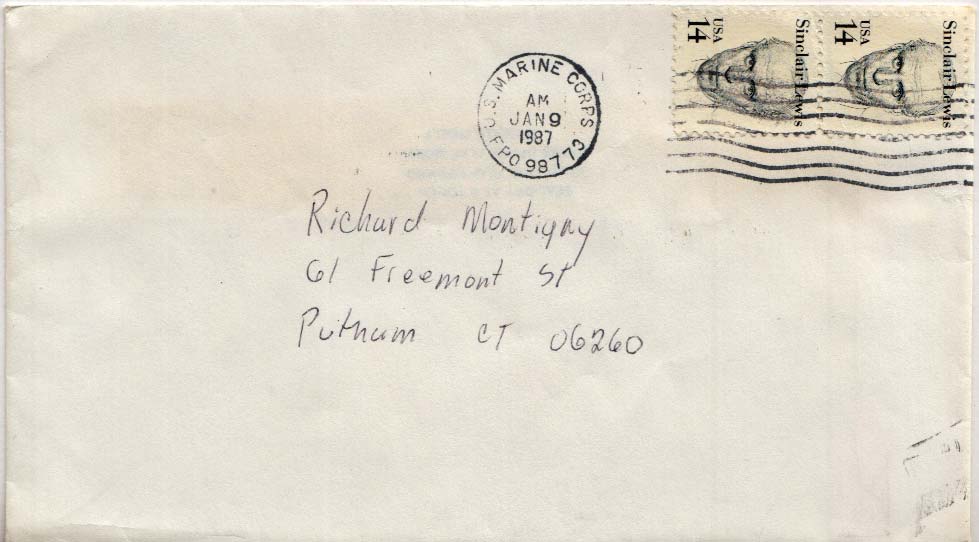 U.S. MARINE CORPS
AM
JAN 9
1987
FPO 98773
Sinclair Lewis
USA
14
Sinclair Lewis
USA
14
Richard Montigny
61 Freemont St
Putnam CT 06260